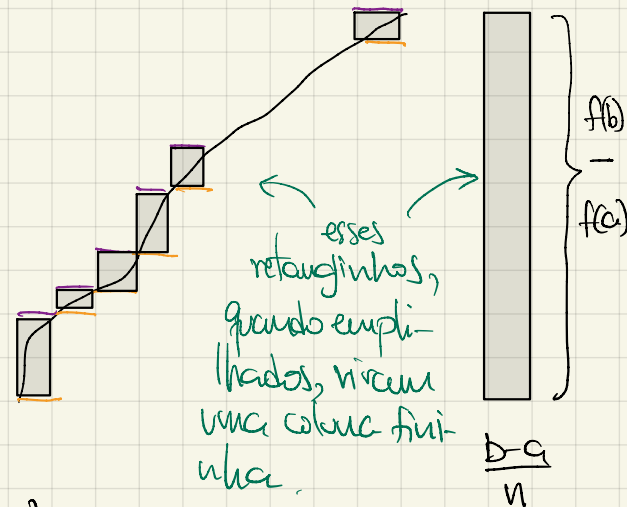 f(b)
—
f(a)
esses
retanginhos,
quando empi-
lhados, viram
uma coluna fini-
nha.
b-a
n